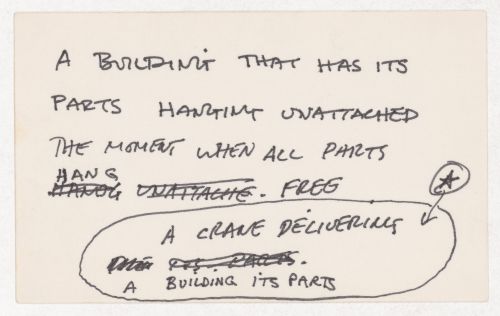 A BUILDING THAT HAS ITS
PARTS HANGING UNATTACHED
THE MOMENT WHEN ALL PARTS
HANG
HANG UNATTACHE. FREE
A CRANE DELIVERING
ITS PARTS.
A BUILDING ITS PARTS